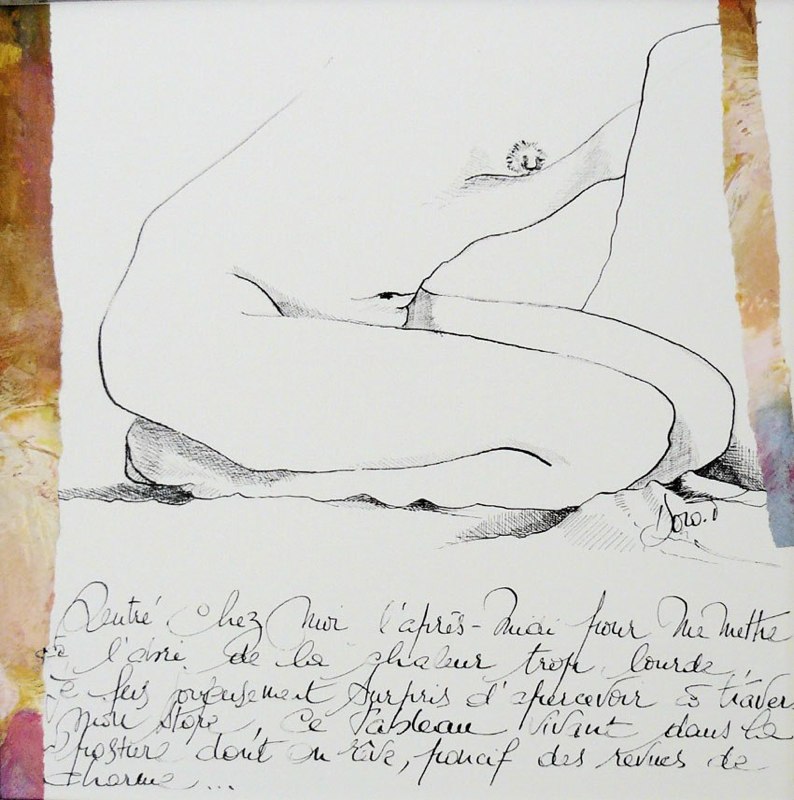 Doro.d
Rentré chez moi l'après-midi pour me mettre
à l'abri de la chaleur trop lourde,
je fus joyeusement surpris d'apercevoir à travers
mon store, ce tableau vivant dans la
posture dont on rêve, poncif des revues de
charme...